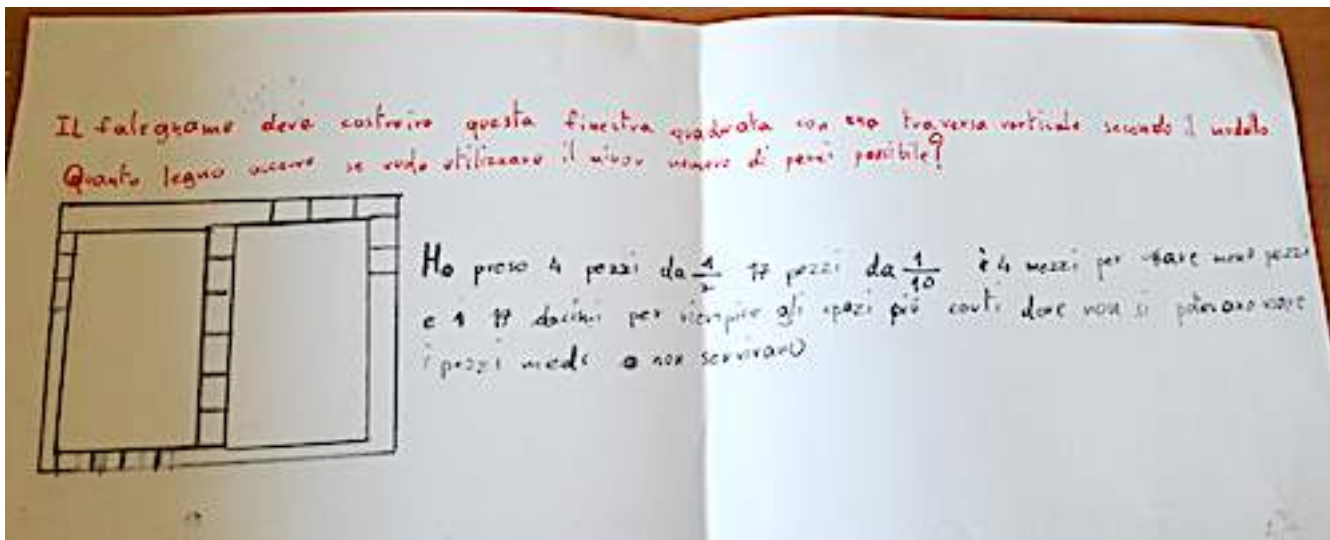 Il falegname deve costruire questa finestra quadrata con una traversa verticale secondo il modello
Quanto legno occorre se vuole utilizzare il minor numero di pezzi possibile?
Ho preso 4 pezzi da 1/2 17 pezzi da 1/10 i 4 mezzi per usare meno pezzi
e i 17 decimi per riempire gli spazi più corti dove non si potevano
i pezzi o non servivano